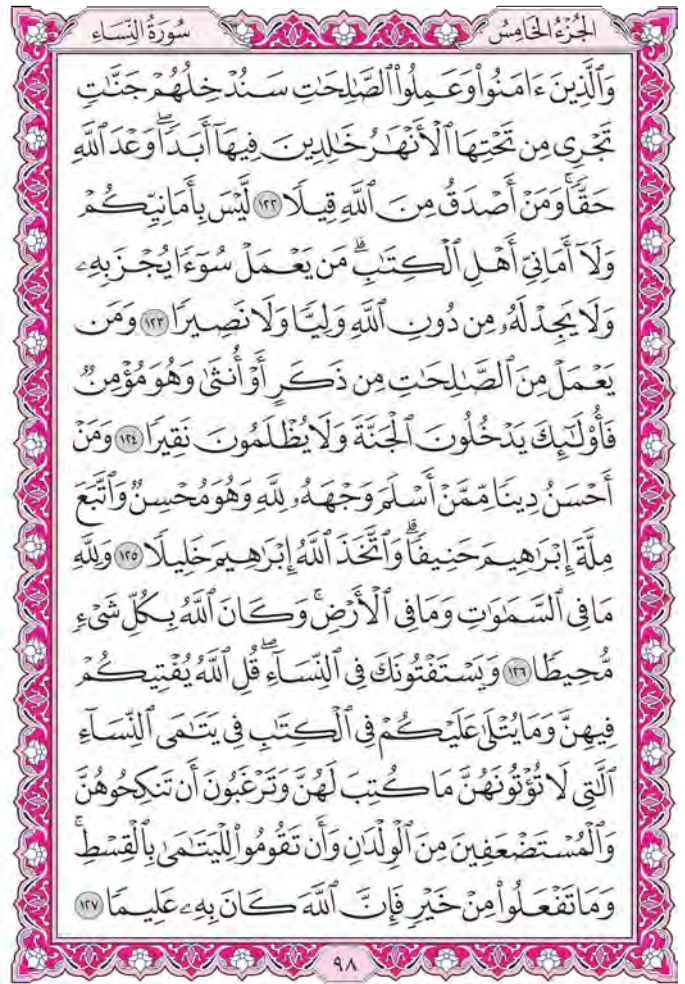 الجُزْءُ الخَامِسُ سُورَةُ النِّسَاءِ
وَٱلَّذِينَ ءَامَنُوا۟ وَعَمِلُوا۟ ٱلصَّٰلِحَٰتِ سَنُدْخِلُهُمْ جَنَّٰتٍ
تَجْرِى مِن تَحْتِهَا ٱلْأَنْهَٰرُ خَٰلِدِينَ فِيهَآ أَبَدًا ۖ وَعْدَ ٱللَّهِ
حَقًّا ۚ وَمَنْ أَصْدَقُ مِنَ ٱللَّهِ قِيلًا ١٢٢ لَّيْسَ بِأَمَانِيِّكُمْ
وَلَآ أَمَانِىِّ أَهْلِ ٱلْكِتَٰبِ ۗ مَن يَعْمَلْ سُوٓءًا يُجْزَ بِهِۦ
وَلَا يَجِدْ لَهُۥ مِن دُونِ ٱللَّهِ وَلِيًّا وَلَا نَصِيرًا ١٢٣ وَمَن
يَعْمَلْ مِنَ ٱلصَّٰلِحَٰتِ مِن ذَكَرٍ أَوْ أُنثَىٰ وَهُوَ مُؤْمِنٌ
فَأُو۟لَٰٓئِكَ يَدْخُلُونَ ٱلْجَنَّةَ وَلَا يُظْلَمُونَ نَقِيرًا ١٢٤ وَمَنْ
أَحْسَنُ دِينًا مِّمَّنْ أَسْلَمَ وَجْهَهُۥ لِلَّهِ وَهُوَ مُحْسِنٌ وَٱتَّبَعَ
مِلَّةَ إِبْرَٰهِيمَ حَنِيفًا ۗ وَٱتَّخَذَ ٱللَّهُ إِبْرَٰهِيمَ خَلِيلًا ١٢٥ وَلِلَّهِ
مَا فِى ٱلسَّمَٰوَٰتِ وَمَا فِى ٱلْأَرْضِ ۚ وَكَانَ ٱللَّهُ بِكُلِّ شَىْءٍ
مُّحِيطًا ١٢٦ وَيَسْتَفْتُونَكَ فِى ٱلنِّسَآءِ ۖ قُلِ ٱللَّهُ يُفْتِيكُمْ
فِيهِنَّ وَمَا يُتْلَىٰ عَلَيْكُمْ فِى ٱلْكِتَٰبِ فِى يَتَٰمَى ٱلنِّسَآءِ
ٱلَّٰتِى لَا تُؤْتُونَهُنَّ مَا كُتِبَ لَهُنَّ وَتَرْغَبُونَ أَن تَنكِحُوهُنَّ
وَٱلْمُسْتَضْعَفِينَ مِنَ ٱلْوِلْدَٰنِ وَأَن تَقُومُوا۟ لِلْيَتَٰمَىٰ بِٱلْقِسْطِ ۚ
وَمَا تَفْعَلُوا۟ مِنْ خَيْرٍ فَإِنَّ ٱللَّهَ كَانَ بِهِۦ عَلِيمًا ١٢٧
٩٨